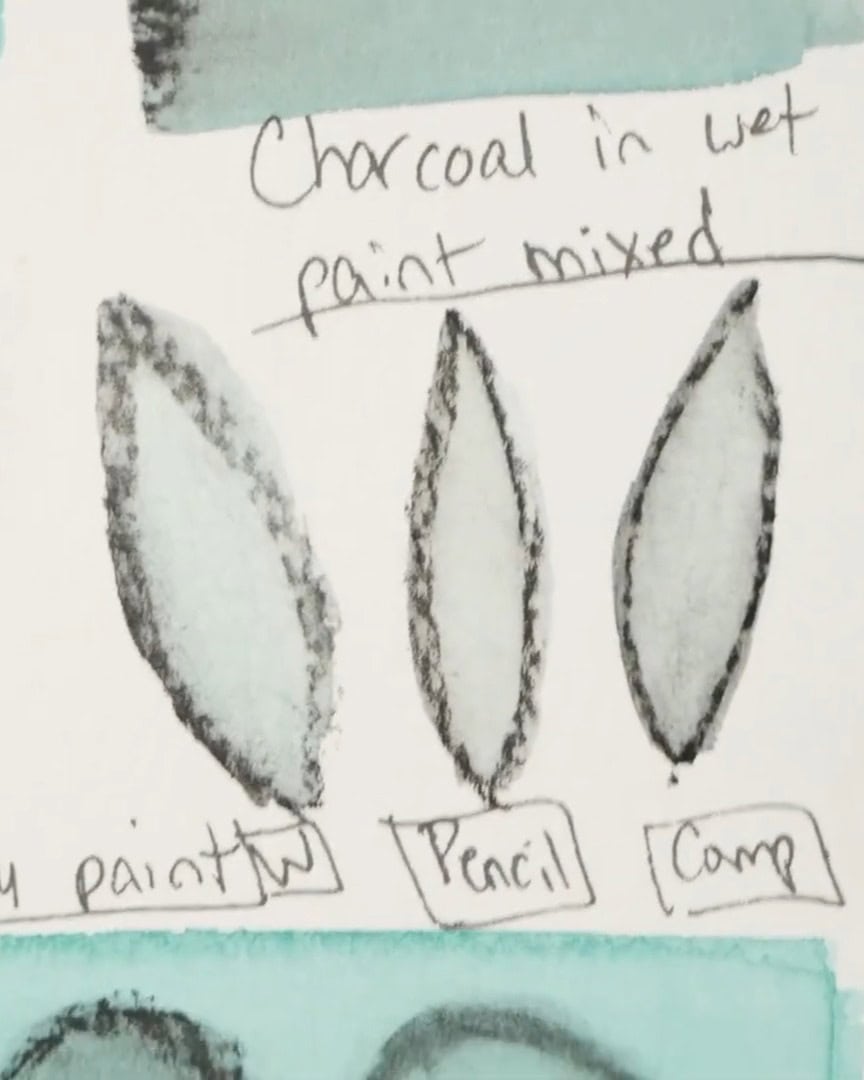 Charcoal in wet
paint mixed
paint W Pencil Comp